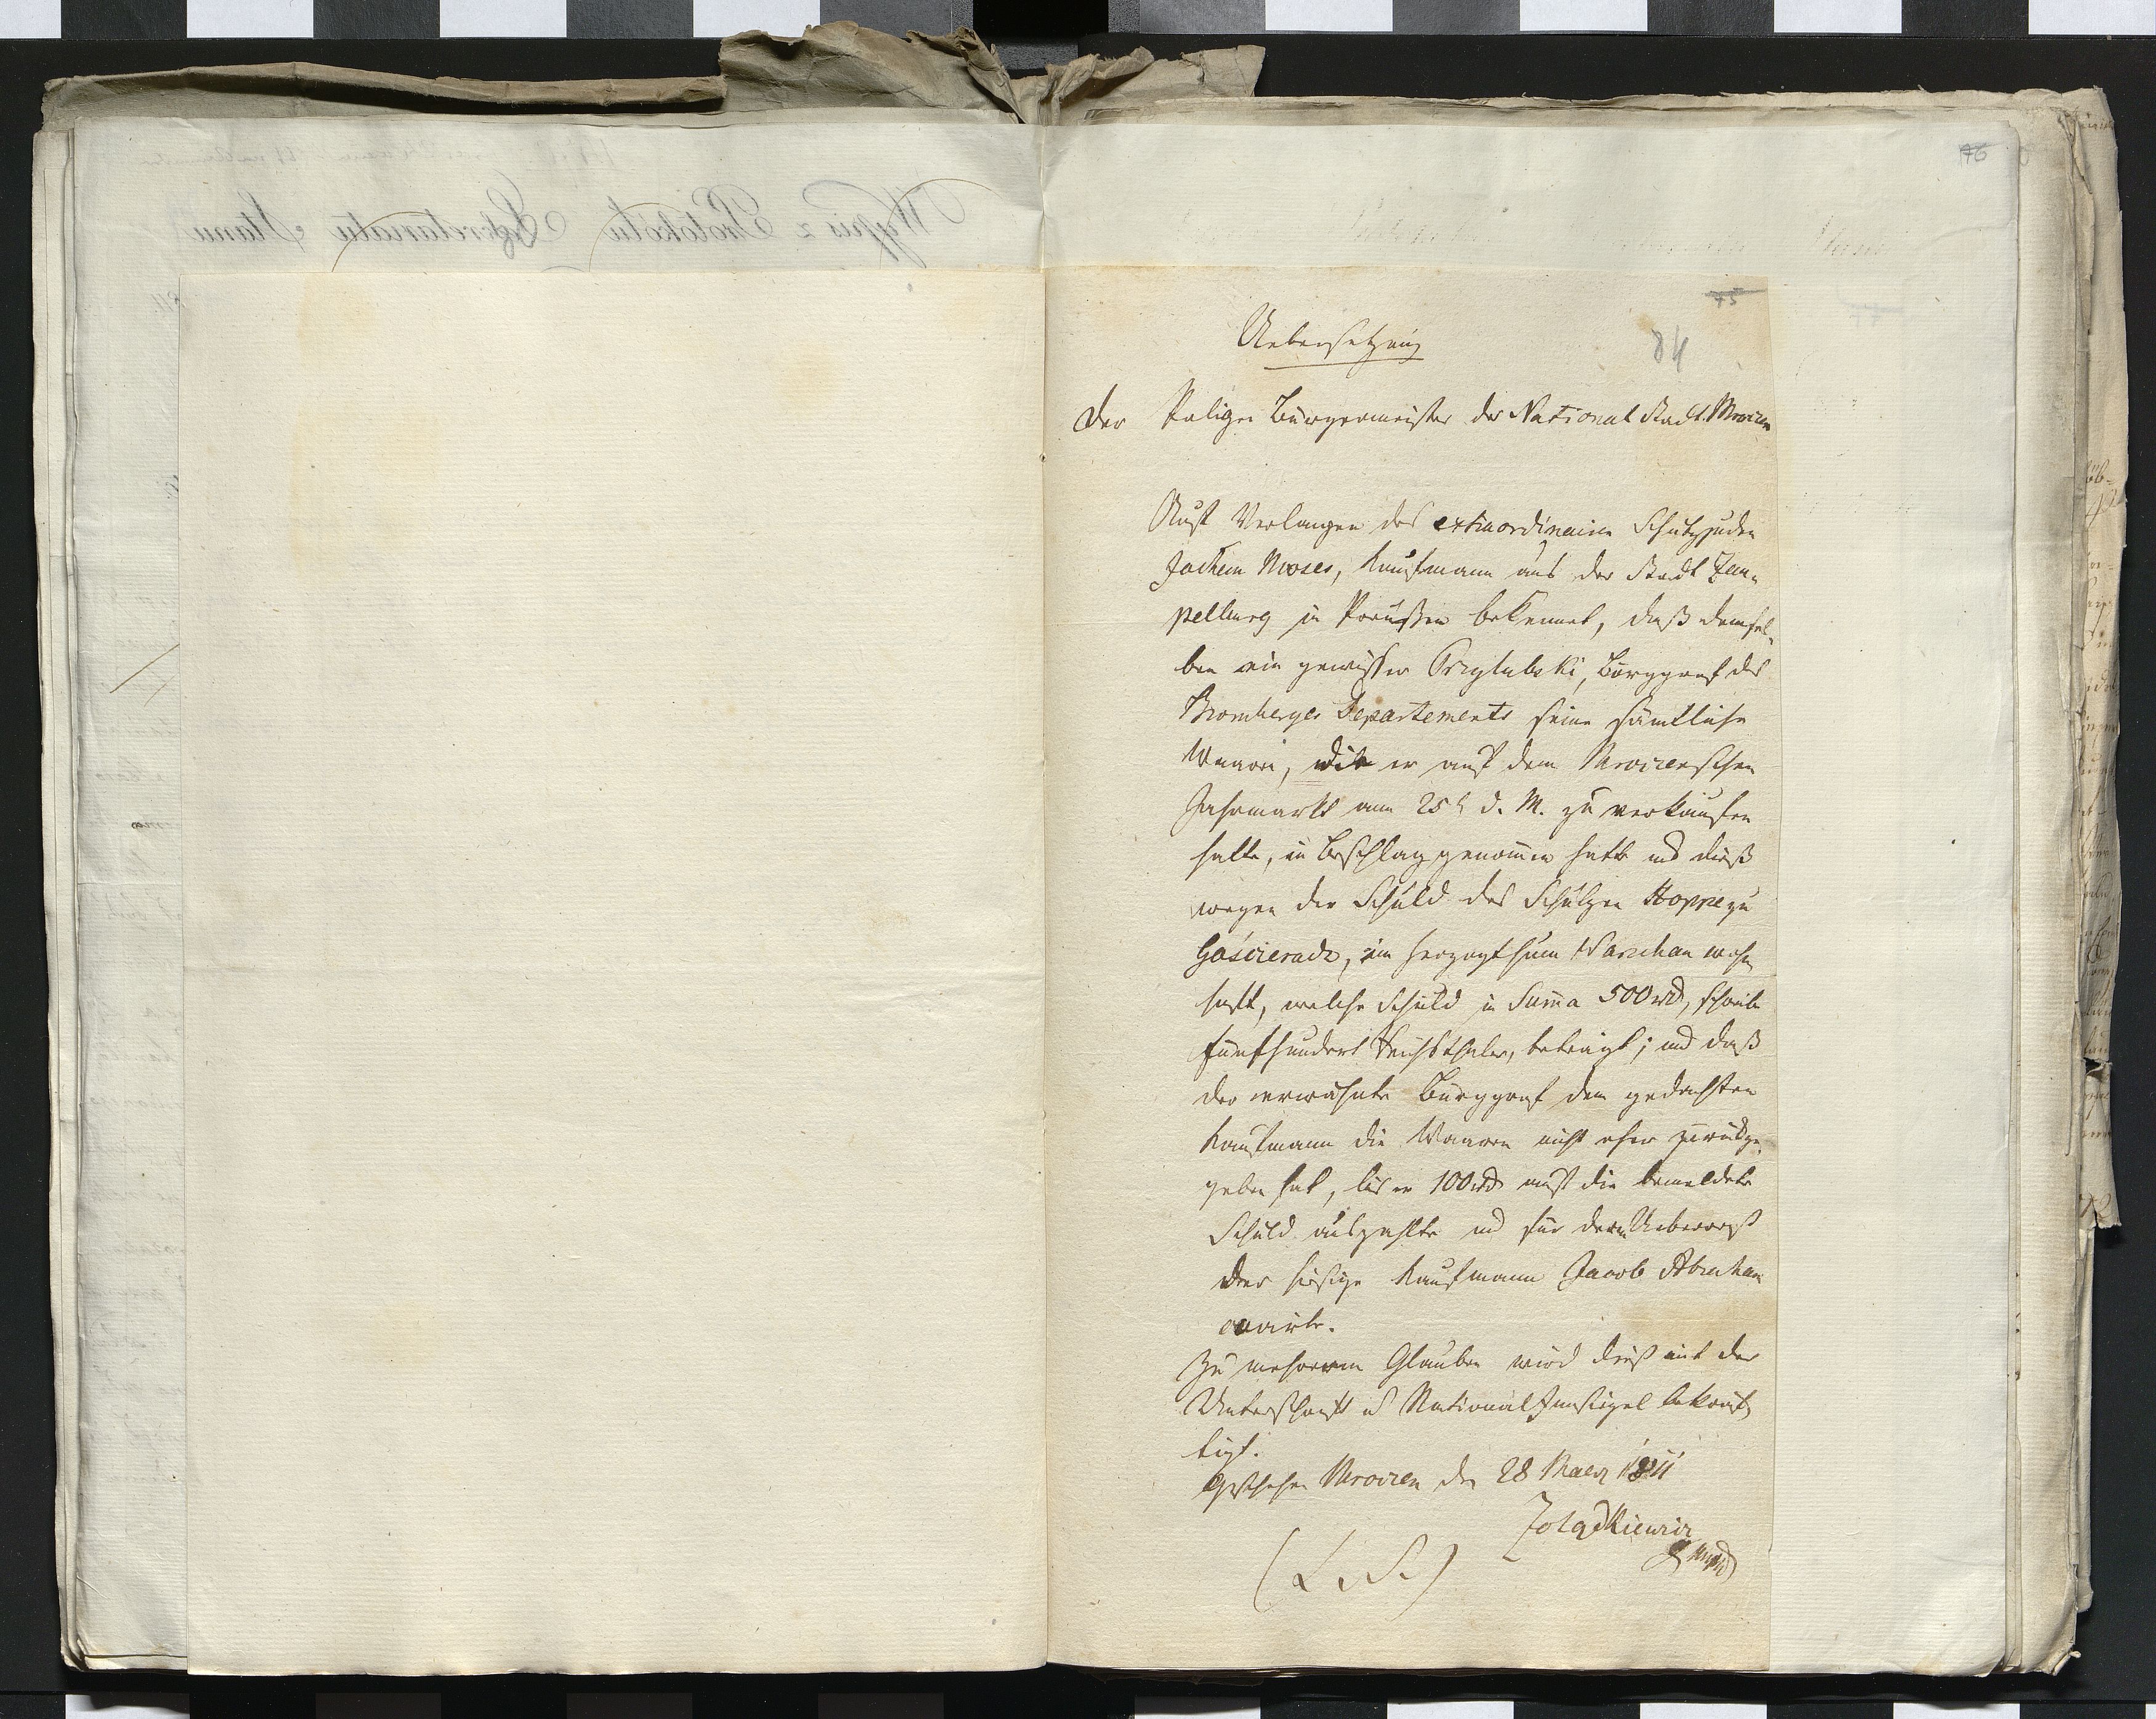 76
75
84
Uebersetzung
Der Polizei Burgermeister der National Stadt Mroczen
Auf Verlangen des extraordinairen Schutzjuden
Jochem Moses, Kaufmann aus der Stadt Zem-
pelburg in Preußen bekennet, daß demsel-
ben ein gewisser Przylubski, Burggraf des
Bromberger Departements seine sämtliche
Waaren, die er auf dem Mroczenschen
Jahrmarkt am 25t d. M. zu verkaufen
hatte, in Beschlag genommen hatte und dieß
wegen der Schuld des Schulzen Hoppe zu
Gościeradz, im Herzogthum Warschau wohn
haft, welche Schuld in Summa 500 rtl, schreibe
fünfhundert Reichsthaler, beträgt; und daß
der erwähnte Burggraf dem gedachten
Kaufmann die Waaren nicht eher zurückge-
geben hat, bis er 100 rtl auf die bemeldete
Schuld auszahlte und für den Ueberrest
der hiesige Kaufmann Jacob Abraham
cavirte.
Zu mehrerem Glauben wird dieß mit der
Unterschrift u NationalInsiegel bekräf-
tigt.
Geschehen Mroczen den 28 Maerz 1811
Żołądkiewicz
(L. S.)
Wypis z Protokółu Sekretariatu Stanu